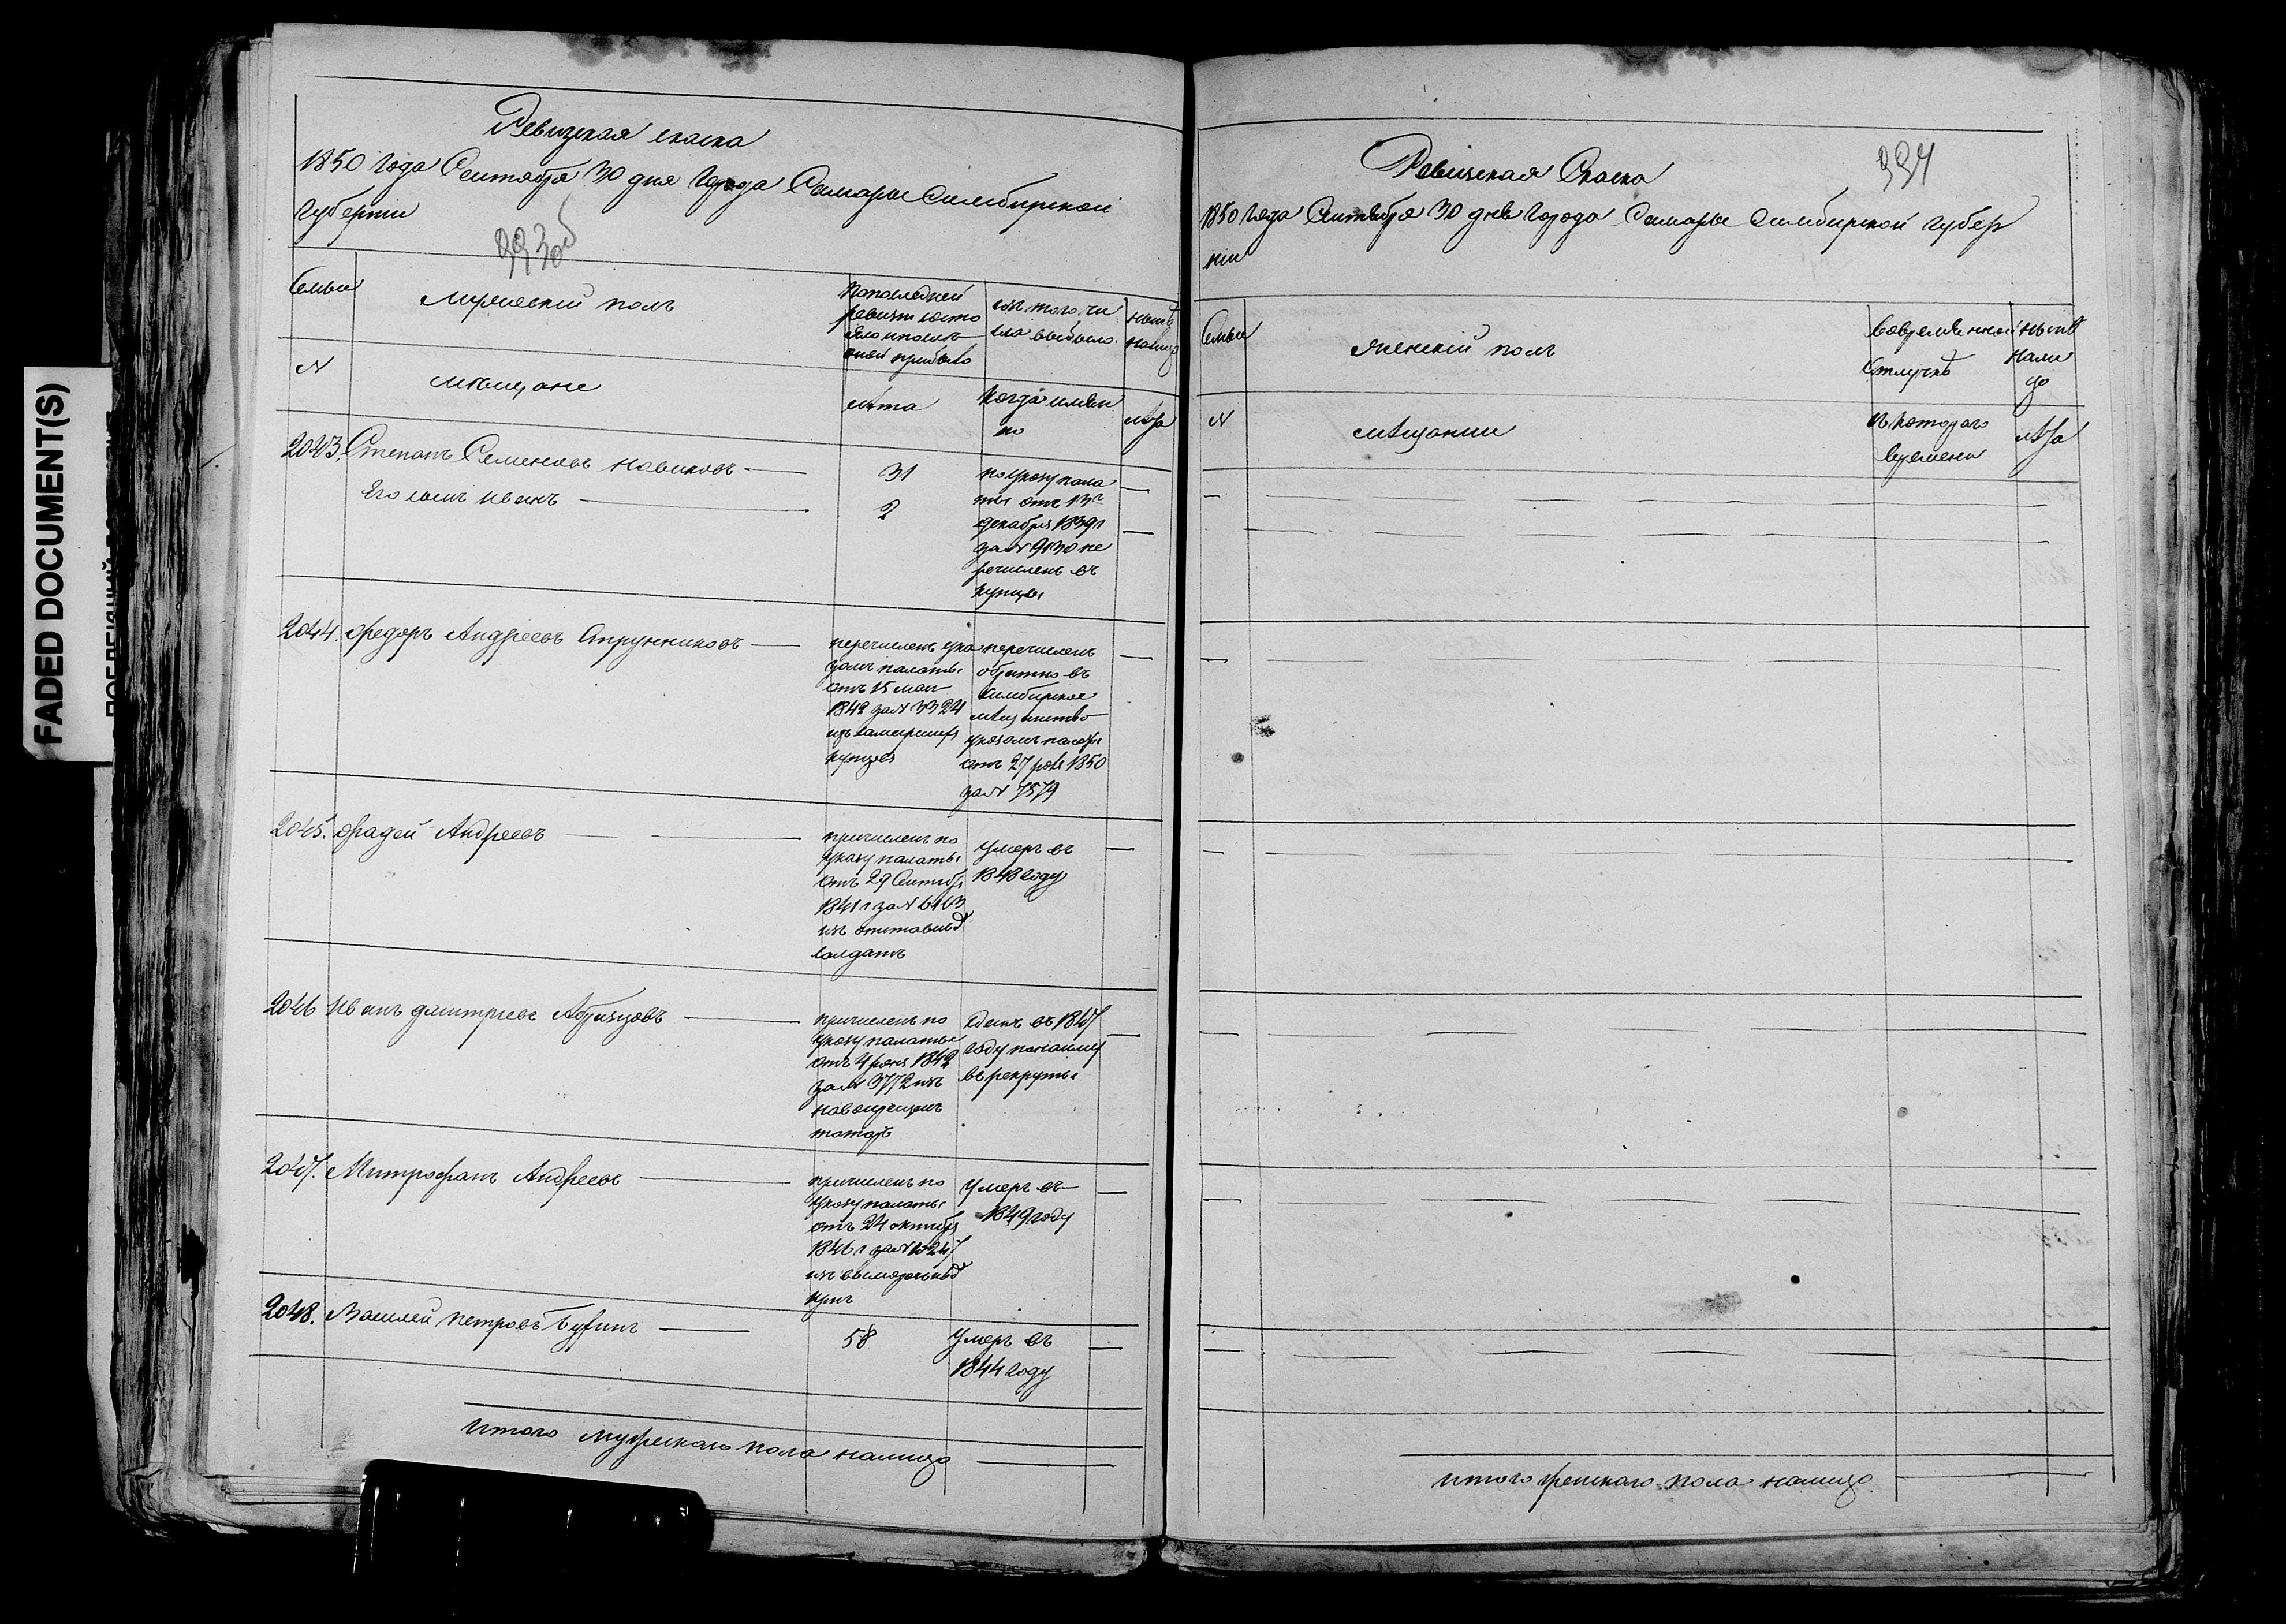 FAADED DOCUMENT(S)
Ревизская сказка
1850 года Сентября 30 дня Города Самары Симбирской
губернии
993об
Семьи
Мужеский полъ
По последней
ревизіи состо
яло и после
оной прибыло
изъ того чи
сла выбыло
ныне
налицо
N
мещане
лета
Когда имен
но
лета
2043. Степанъ Семеновъ Новиковъ
31
Его сынъ Иванъ
2
по указу пала
ты отъ 13го
декабря 1839 г
за N 9130 пе
речисленъ въ
купцы
2044. Федоръ Андреевъ Струнниковъ
перечисленъ ука
зомъ палаты
отъ 15 мая
1842 за N 3324
изъ самарских
купцовъ
перечисленъ
обратно въ
симбирское
мещанство
указомъ палаты
отъ 27 1850
за N 7579
2045. Фадей Андреевъ
причисленъ по
указу палаты
отъ 29 Сентябр
1841 г за N 6163
изъ отставных
солдатъ
умеръ въ
1848 году
2046 Иванъ Дмитриевъ Абрязцовъ
причисленъ по
указу палаты
отъ 4 июня 1842
за N 3772 изъ
новокрещенъ
татаръ
Сданъ въ 1847
году по найму
въ рекруты
2047. Митрофанъ Андреевъ
причисленъ по
указу палаты
отъ 24 октября
1846 г за N 10247
изъ
умеръ въ
1849 году
2048. Василей Петровъ
58
умеръ въ
1844 году
итого мужескаго пола налицо
Ревизская Сказка
994
1850 Года Сентября 30 дня Города Самары Симбирской губер
ніи
Семьи
Женскій полъ
Во временной
отлучке
ныне
нали
цо
N
мещанки
съ котораго
времени
лета
итого женскаго пола налицо